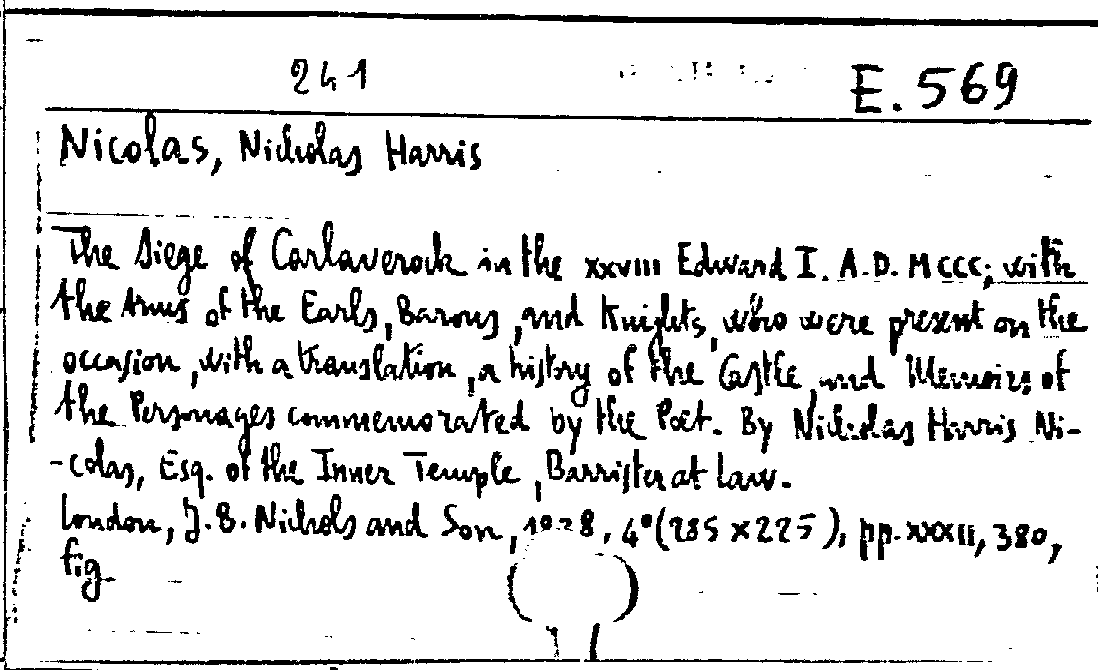 241 E. 569
Nicolas, Nicholas Harris
The Siege of Carlaverock in the XXVIII Edward I. A.D. MCCC; with
the Arms of the Earls, Barons, and Knights, who were present on the
occasion, with a translation, a history of the Castle, and Memoirs of
the Personages commemorated by the Poet. By Nicholas Harris Ni-
-colas, Esq. of the Inner Temple, Barrister at law.
London, J.B. Nichols and Son, 1828, 4° (285 x 225), pp. XXXII, 380,
fig.